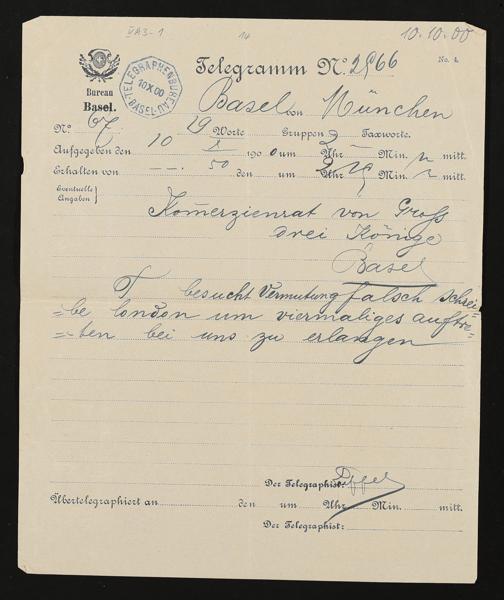 VA3-1
14
10.10.00
TELEGRAPHENBUREAU
10X00
-BASEL-
Telegramm Nº. 2966
No. 4.
Bureau
Basel.
Basel von München
Nº 67 29 Worte Gruppen 2 Taxworte.
Aufgegeben den 10 X 1900 um 2 Uhr — Min. n mitt.
Erhalten von —.— 50 den um 2 Uhr Min. n mitt.
Eventuelle
Angaben
Komerzienrat von Gross
drei Könige
Basel
T besucht Vermutung falsch schrei=
=be london um viermaliges auftre=
=ten bei uns zu erlangen
Der Telegraphist:
Übertelegraphiert an den um Uhr Min. mitt.
Der Telegraphist: